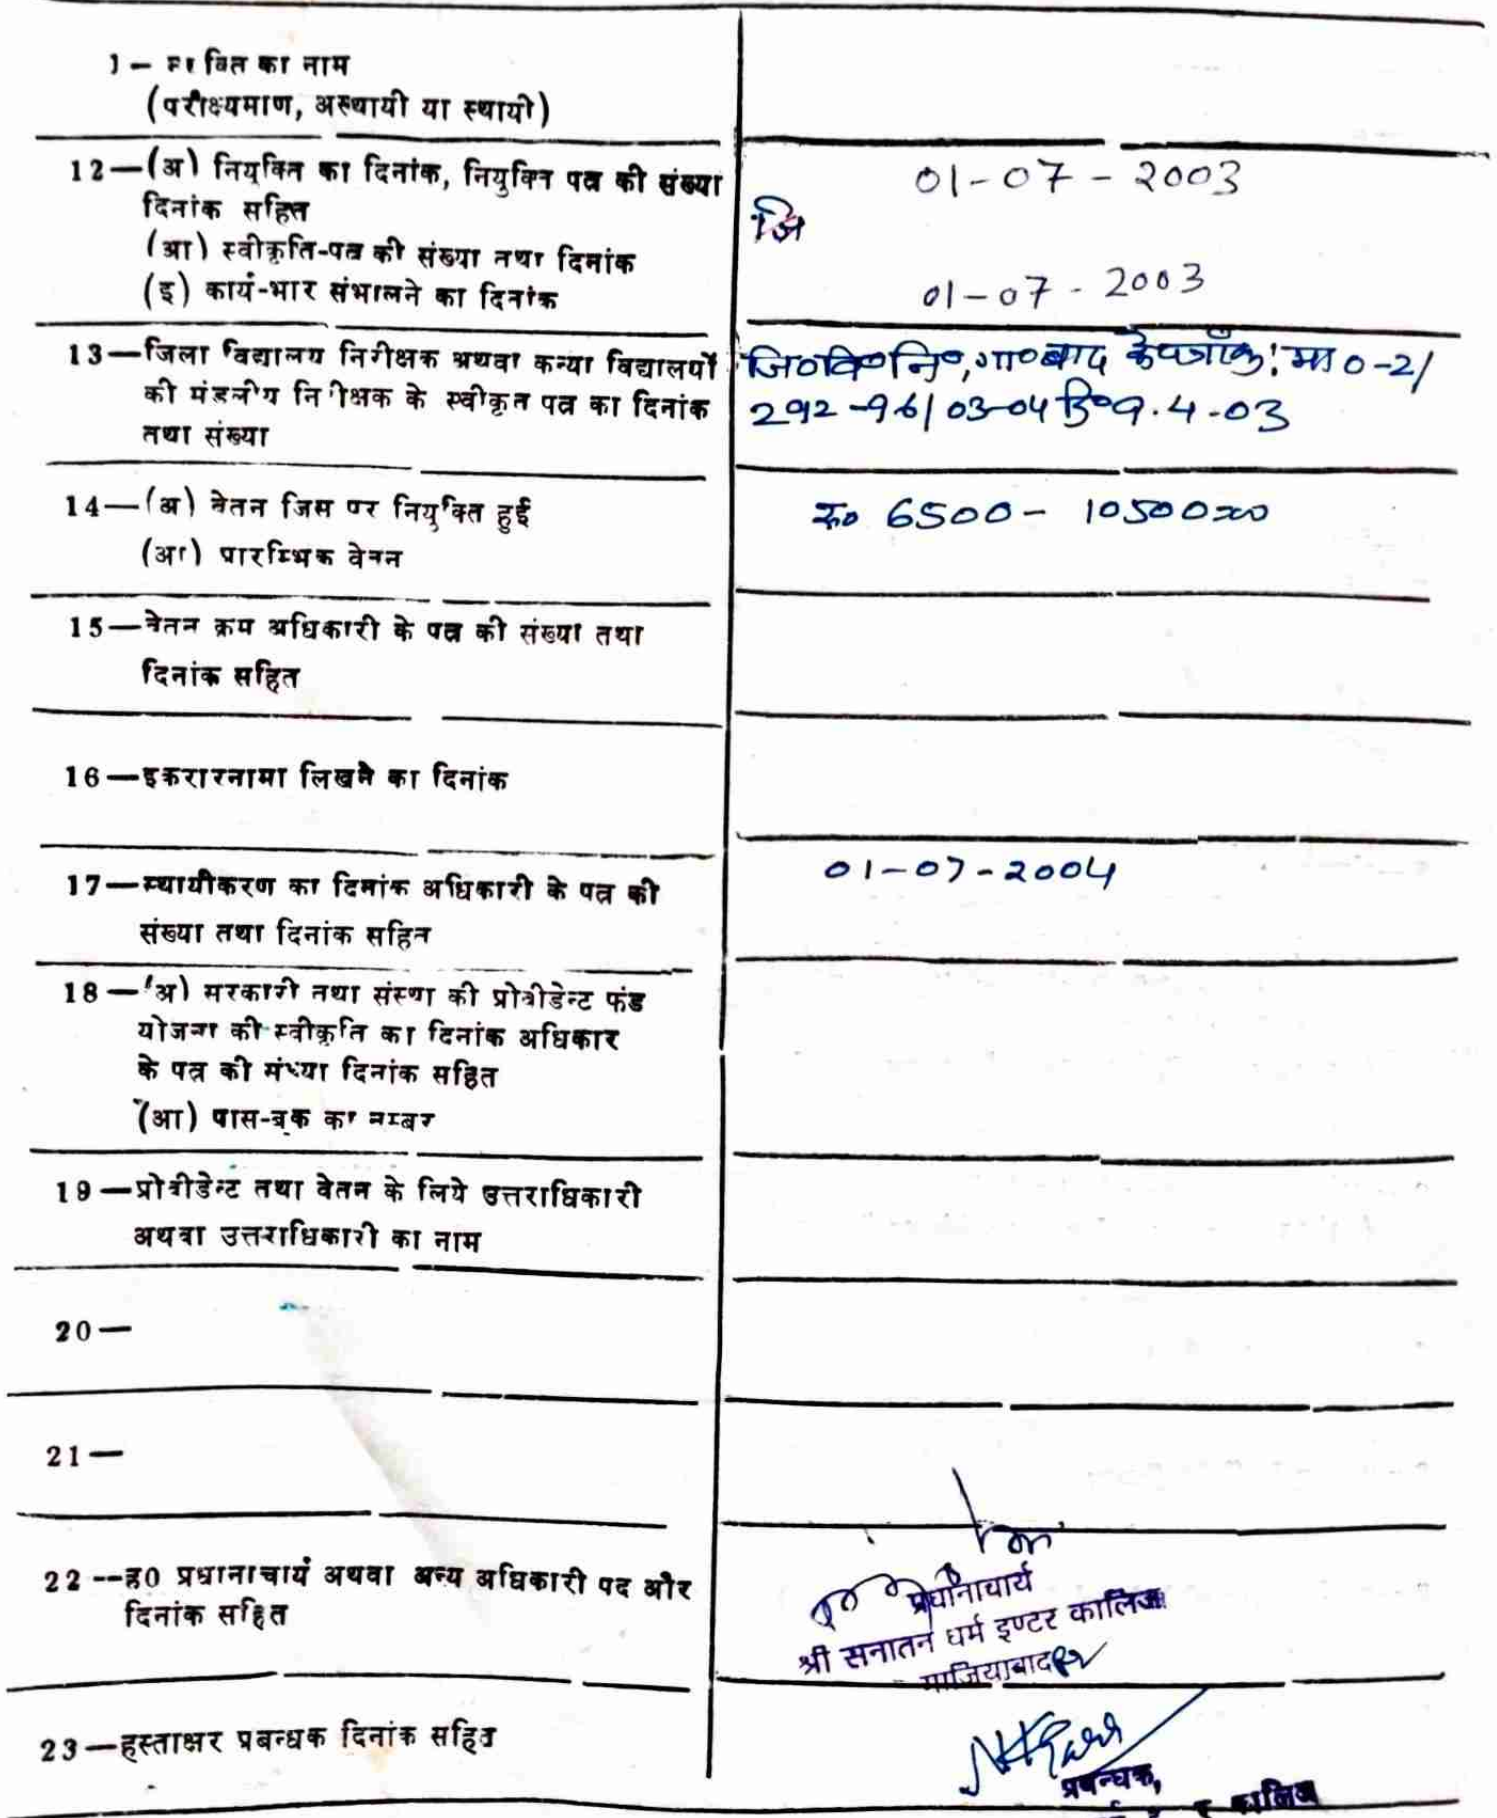 का नाम
(परीक्ष्यमाण, अस्थायी या स्थायी)
12—(अ) नियुक्ति का दिनांक, नियुक्ति पत्र की संख्या
दिनांक सहित
(आ) स्वीकृति-पत्र की संख्या तथा दिनांक
(इ) कार्य-भार संभालने का दिनांक
01-07-2003
जि
01-07-2003
13—जिला विद्यालय निरीक्षक अथवा कन्या विद्यालयों
की मंडलीय निरीक्षक के स्वीकृत पत्र का दिनांक
तथा संख्या
जि०वि०नि०, गा०बाद के पत्रांक: मा०-2/
292-96/03-04 दि० 9.4.03
14—(अ) वेतन जिस पर नियुक्ति हुई
(आ) प्रारम्भिक वेतन
रू० 6500-10500
15—वेतन क्रम अधिकारी के पत्र की संख्या तथा
दिनांक सहित
16—इकरारनामा लिखने का दिनांक
17—स्थायीकरण का दिनांक अधिकारी के पत्र की
संख्या तथा दिनांक सहित
01-07-2004
18—(अ) सरकारी तथा संस्था की प्रोवीडेन्ट फंड
योजना की स्वीकृति का दिनांक अधिकार
के पत्र की संख्या दिनांक सहित
(आ) पास-बुक का नम्बर
19—प्रोवीडेन्ट तथा वेतन के लिये उत्तराधिकारी
अथवा उत्तराधिकारी का नाम
20—
21—
22--ह0 प्रधानाचार्य अथवा अन्य अधिकारी पद और
दिनांक सहित
प्रधानाचार्य
श्री सनातन धर्म इण्टर कालिज
गाजियाबाद
23—हस्ताक्षर प्रबन्धक दिनांक सहित
प्रबन्धक,
कालिज